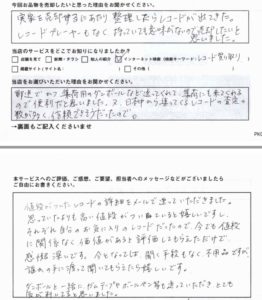 今回お品物を売却したいと思った理由をお聞かせください。
実家を売却するにあたり整理したらレコードが出てきた。
レコードプレーヤーもなく持っていても意味がないので売却したいと
思いました。
当店のサービスをどこでお知りになりましたか?
店舗を見て 新聞・チラシ 知人の紹介 インターネット(検索キーワード:レコード買取り)
情報サイト(サイト名: ) その他( )
当店をお選びいただいた理由をお聞かせください。
郵送で
集荷用のダンボールなど送ってくれて、集荷にも来てくれる
ので便利だと思いました。又、日本中から集ってくるレコードの査定の
数が多く信頼できそうだったので。
→裏面もご記入くださいませ
本サービスへのご評価、ご感想、ご要望、担当者へのメッセージなどがございましたら
ご自由にお書きください。
値段がついたレコードの詳細をメールで送っていただきました。
思っていたよりも高い値段がついていると嬉しいですし、
それぞれ自分のお気に入りのレコードだったので、今でも値段
に関係なく価値があると評価してもらえただけで、
感慨深いです。今となっては、聞く手段もなく不用品ですが
誰かの手に渡って聞いてもらえたら嬉しいです。
ダンボールと一緒にガムテープやボールペン等も送って頂き とても